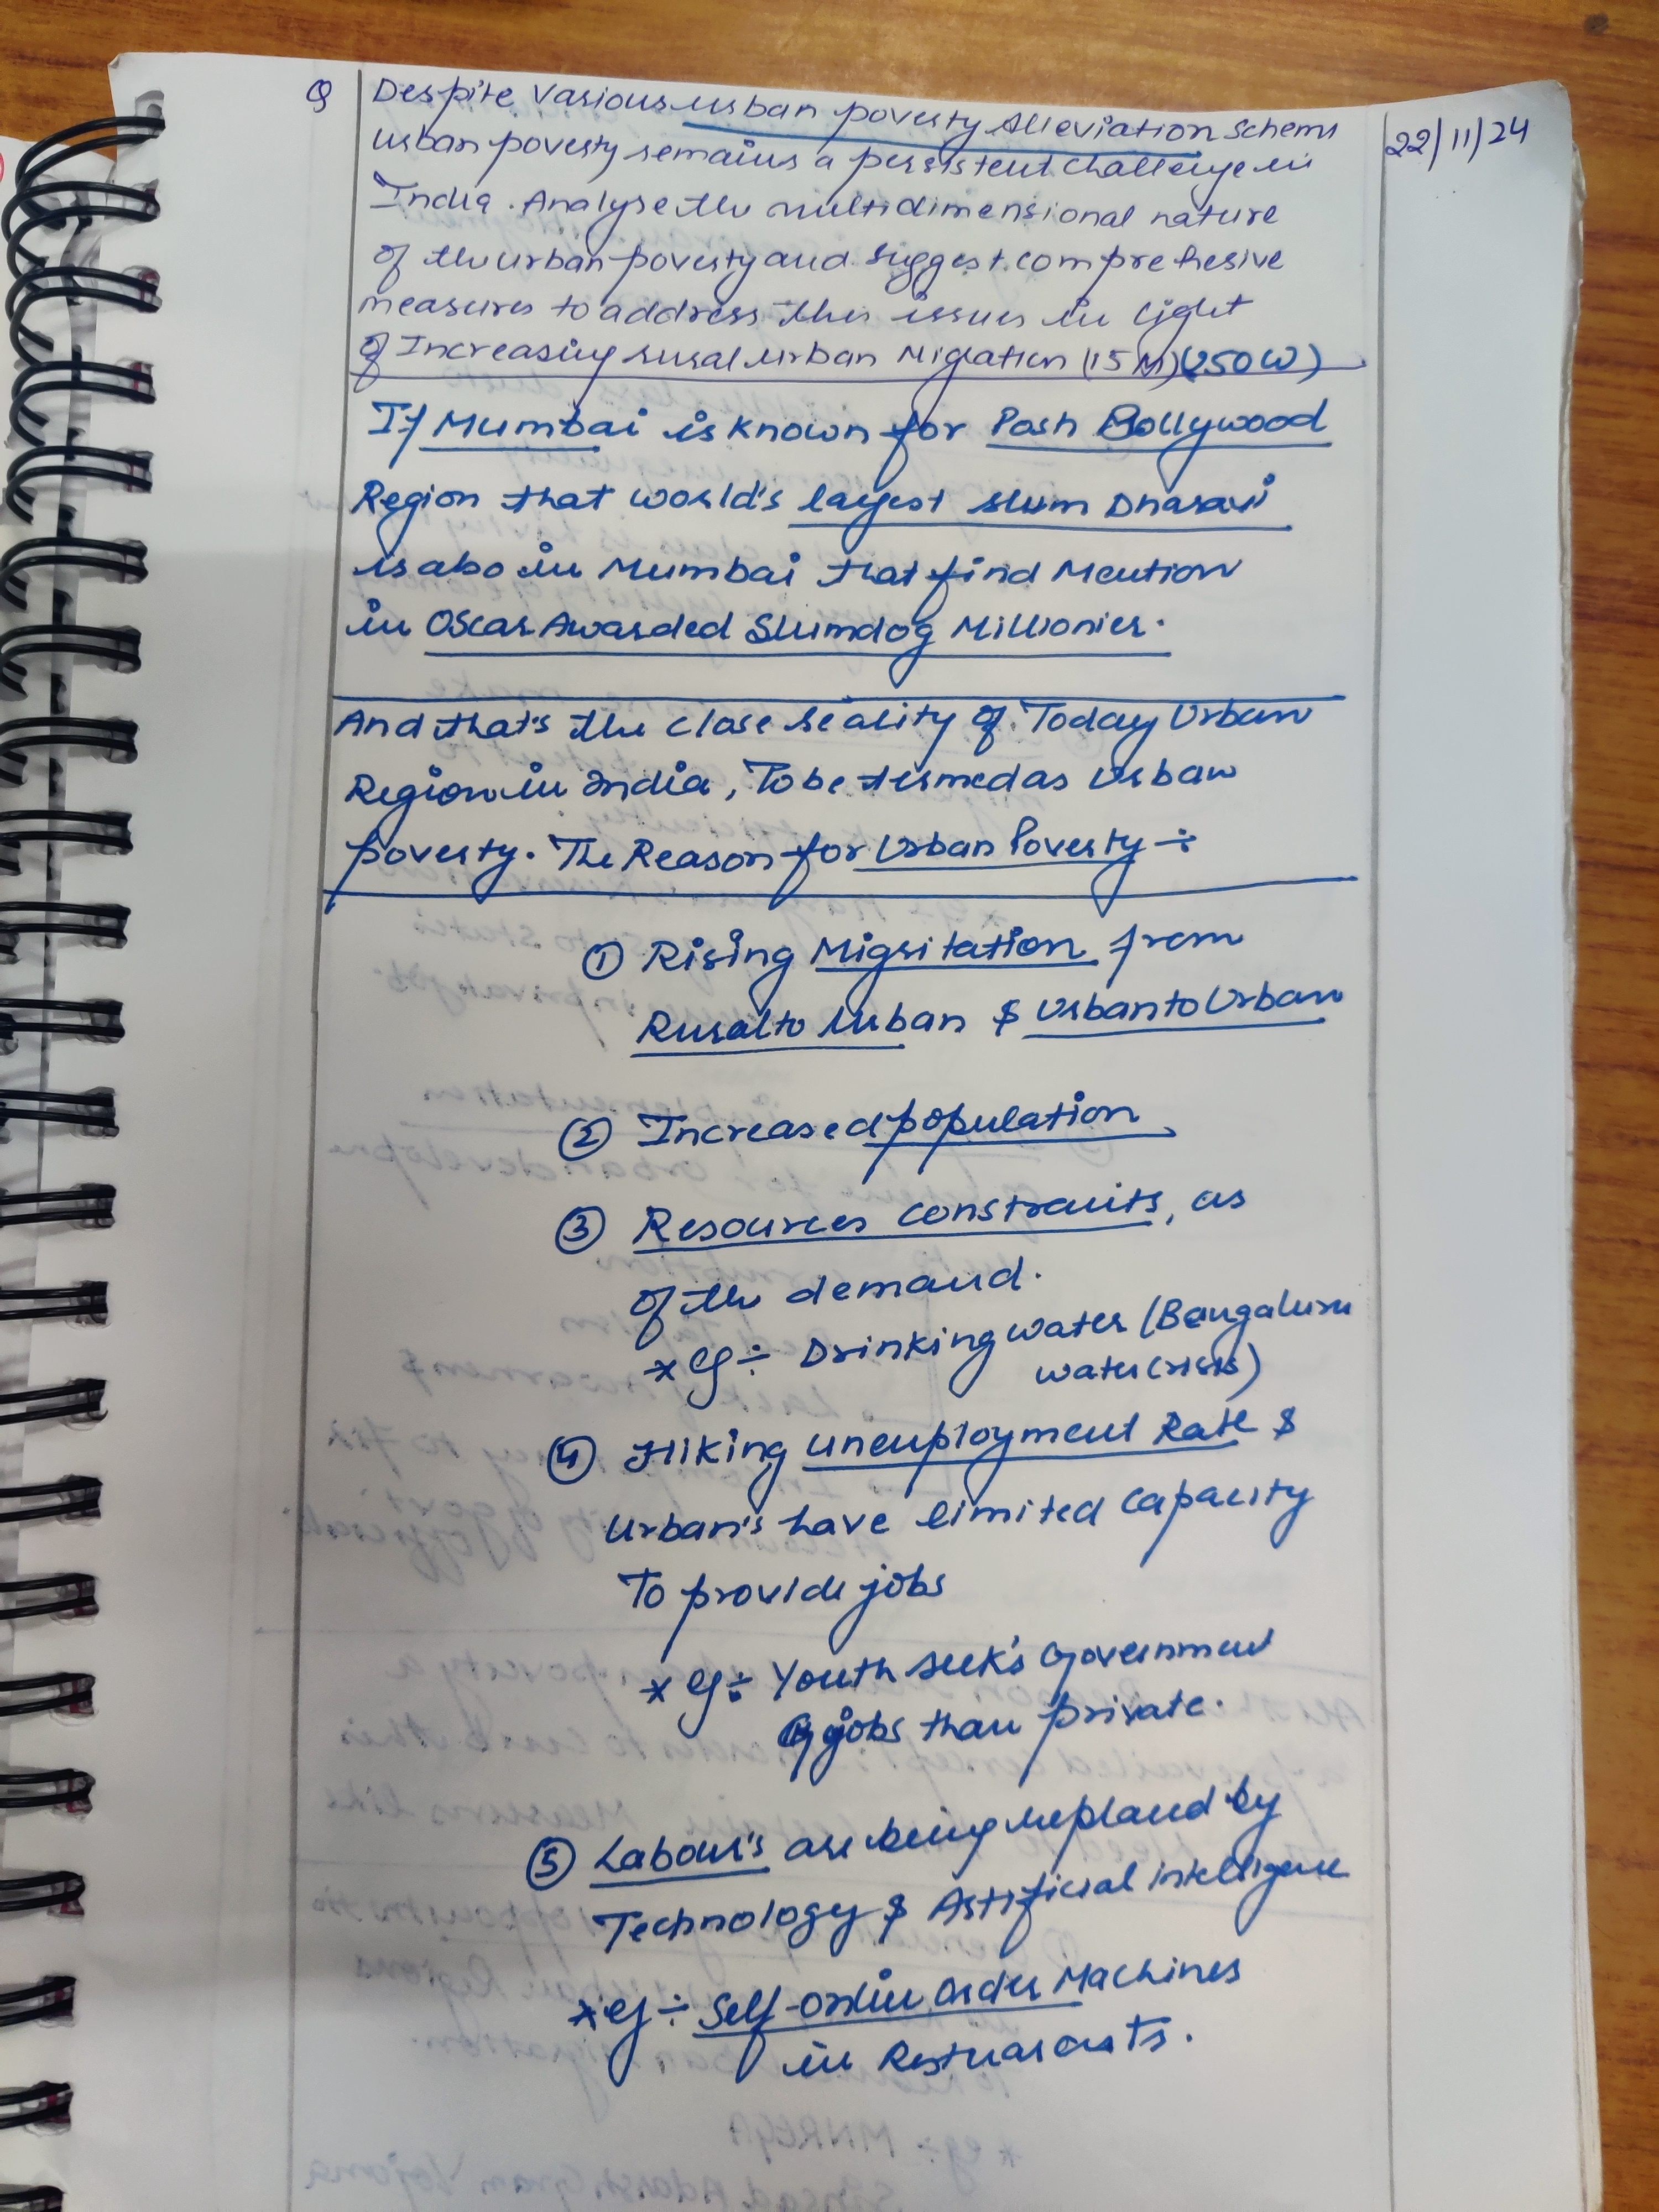 Q Despite Various urban poverty Alleviation Schems 22/11/24
urban poverty remains a persistent challenge in
India. Analyse the multidimensional nature
of the urban poverty and suggest comprehesive
measures to address this issues in light
of Increasing rural urban Migration (15 M) (250 W)
If Mumbai is known for Posh Bollywood
Region that world's largest slum Dharavi
is also in Mumbai that find Mention
in Oscar Awarded Slumdog Millionier.
And that's the close reality of Today Urban
Region in India, To be termed as Urban
poverty. The Reason for Urban Poverty ÷
① Rising Migritation from
Rural to Urban & Urban to Urban
② Increased population
③ Resources constraints, as
of the demand.
* eg ÷ Drinking water (Bangaluru
water crisis)
④ Hiking unemployment Rate &
Urban's have limited capacity
To provide jobs
* eg ÷ Youth seek's Government
jobs than private.
⑤ Labour's are being replaced by
Technology & Artificial intelligence
* eg ÷ Self-Online Order Machines
in